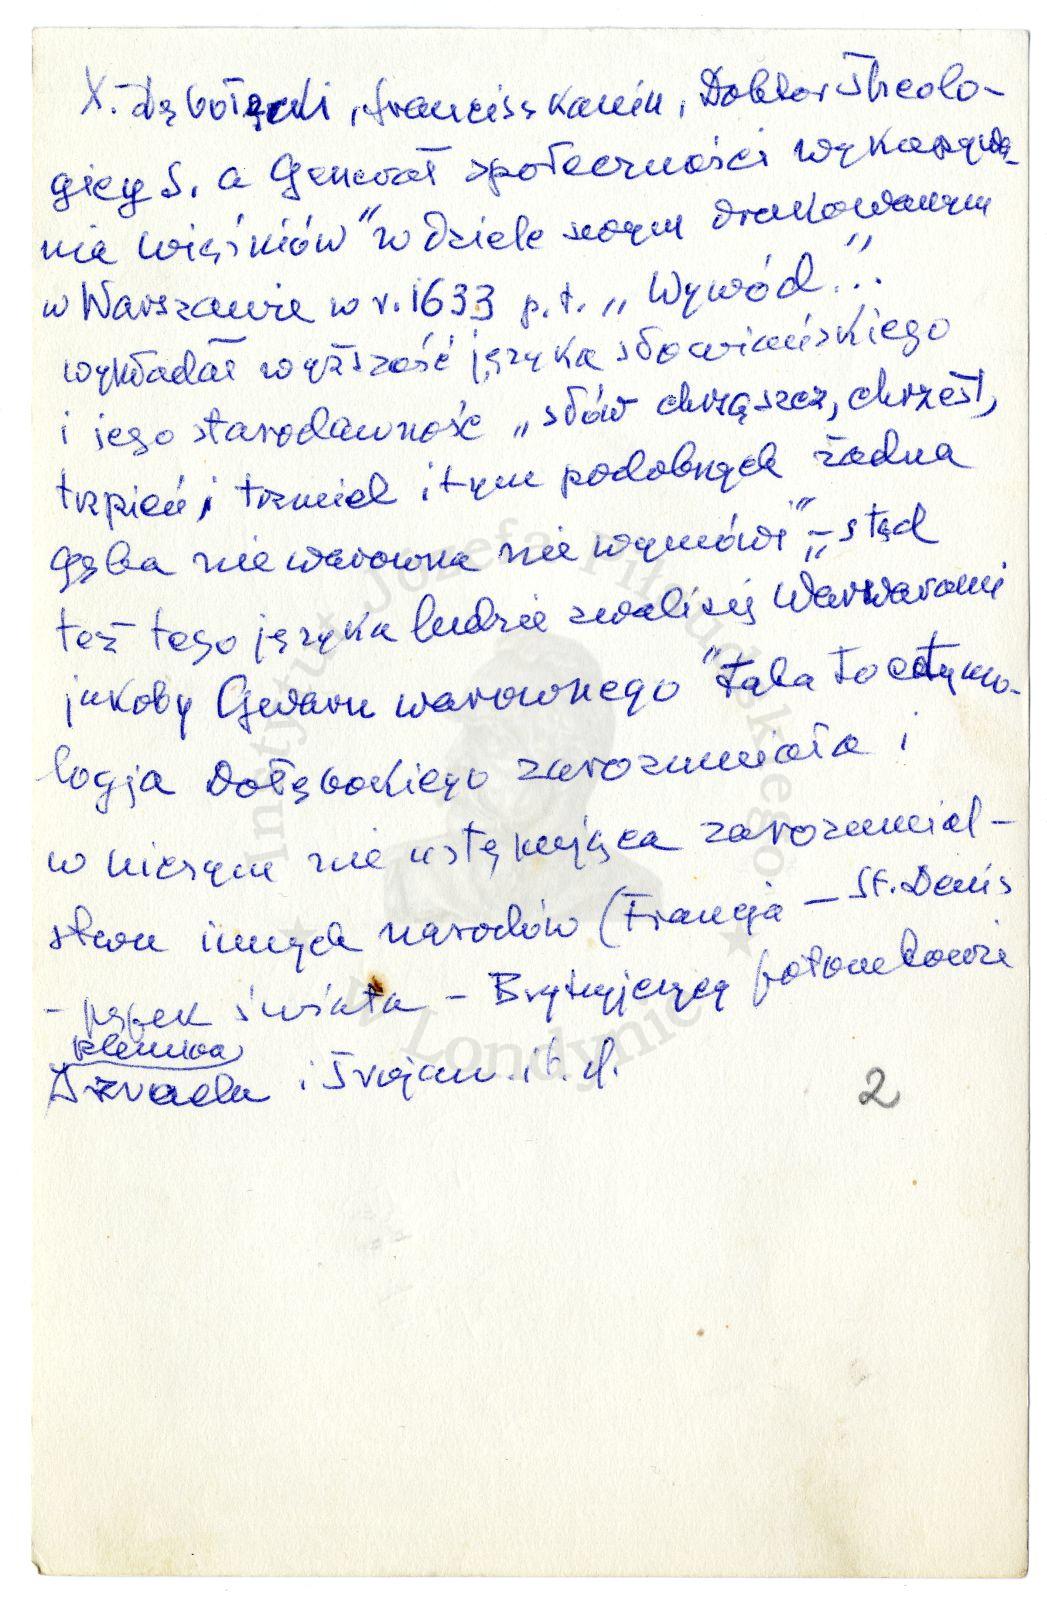 X. Dębołęcki, franciszkanin, Doktor Theolo-
giey S. a Generał społeczności wykapywa-
nia więźniów" w dziele swym drukowanym
w Warszawie w r. 1633 p.t. „Wywód..."
wykładał wyższość języka słowiańskiego
i jego starodawność „słów chrząszcz, chrzest,
trzpień, trzmiel i tym podobnych żadna
gęba nie warowna nie wymówi" – „stąd
też tego języka ludzie zwali się Warwarami
jakoby Gwaru warownego" Taka to etymo-
logja Dołębockiego zarozumiała i
w niczym nie ustępująca zarozumial-
stwu innych narodów (Francja – St. Denis
– pępek świata – Brytyjczycy potomkowie
plemion
Izraela i Trojan it.d.
2
Instytut Józefa Piłsudskiego
w Londynie